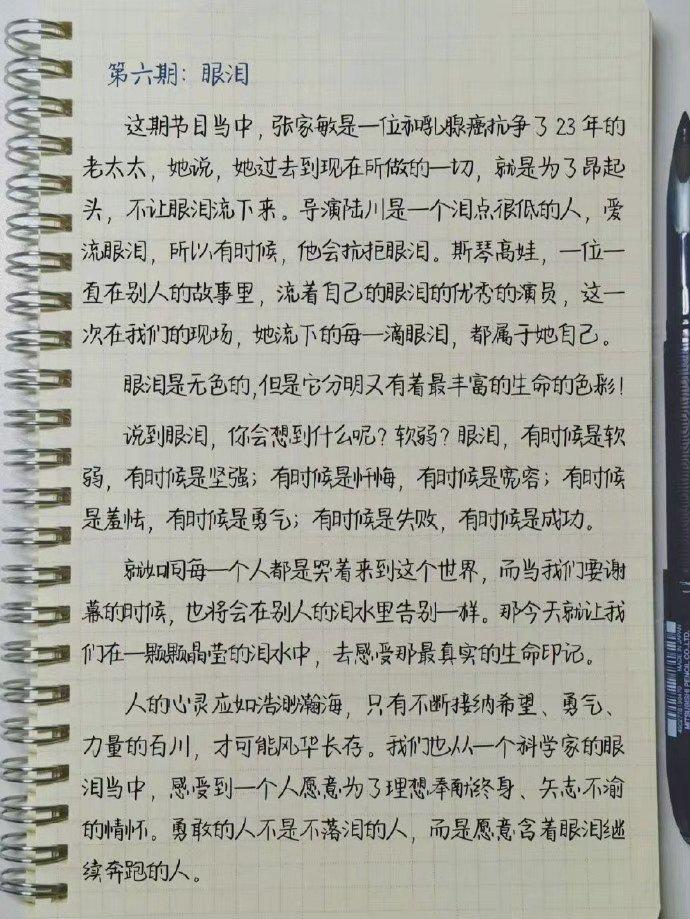 第六期：眼泪
这期节目当中，张家敏是一位和乳腺癌抗争了23年的
老太太，她说，她过去到现在所做的一切，就是为了昂起
头，不让眼泪流下来。导演陆川是一个泪点很低的人，爱
流眼泪，所以有时候，他会抗拒眼泪。斯琴高娃，一位一
直在别人的故事里，流着自己的眼泪的优秀的演员，这一
次在我们的现场，她流下的每一滴眼泪，都属于她自己。
眼泪是无色的，但是它分明又有着最丰富的生命的色彩！
说到眼泪，你会想到什么呢？软弱？眼泪，有时候是软
弱，有时候是坚强；有时候是忏悔，有时候是宽容；有时候
是羞怯，有时候是勇气；有时候是失败，有时候是成功。
就如同每一个人都是哭着来到这个世界，而当我们要谢
幕的时候，也将会在别人的泪水里告别一样。那今天就让我
们在一颗颗晶莹的泪水中，去感受那最真实的生命印记。
人的心灵应如浩渺瀚海，只有不断接纳希望、勇气、
力量的百川，才可能风华长存。我们也从一个科学家的眼
泪当中，感受到一个人愿意为了理想奉献终身、矢志不渝
的情怀。勇敢的人不是不落泪的人，而是愿意含着眼泪继
续奔跑的人。
MADE IN JAPAN
MITSUBISHI PENCIL CO.,LTD.